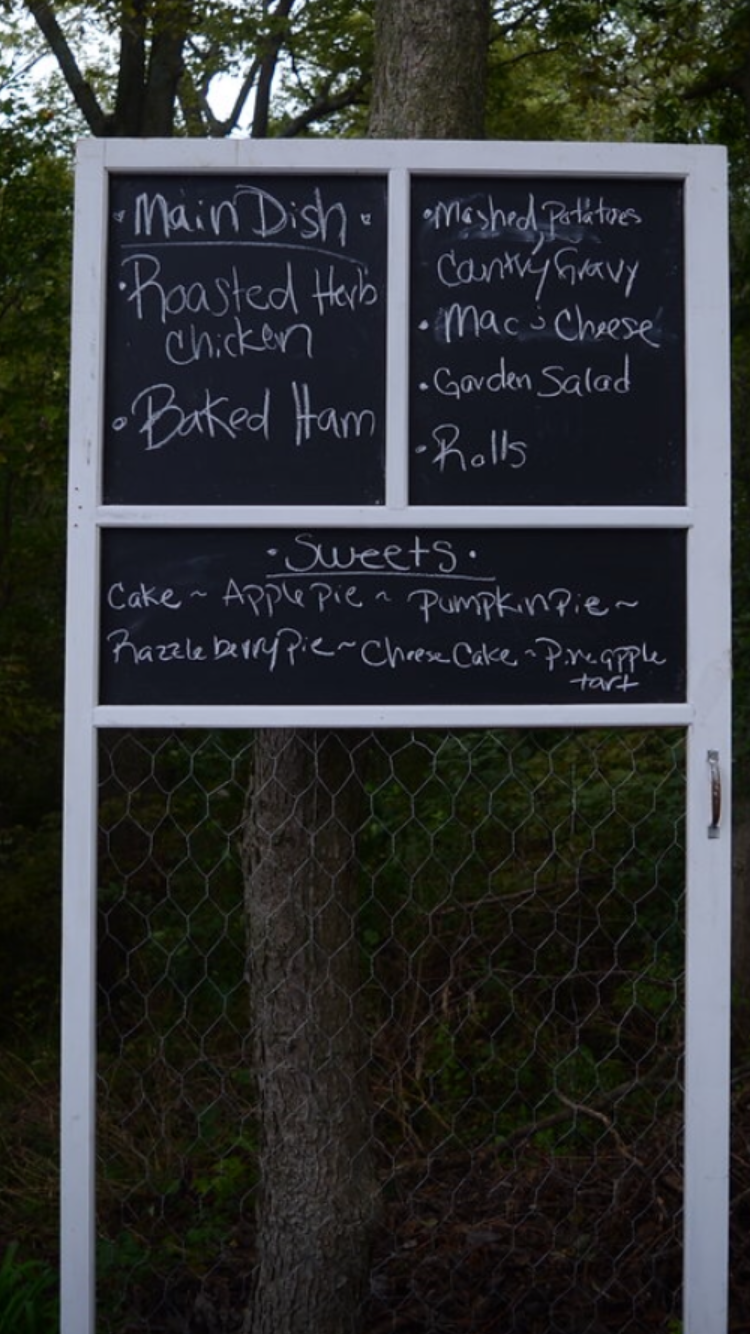 Main Dish
• Roasted Herb
Chicken
• Baked Ham
• Mashed Potatoes
Country Gravy
• Mac & Cheese
• Garden Salad
• Rolls
• Sweets •
Cake ~ Apple pie ~ Pumpkin Pie ~
Razzleberry Pie ~ Cheese Cake ~ Pineapple
tart